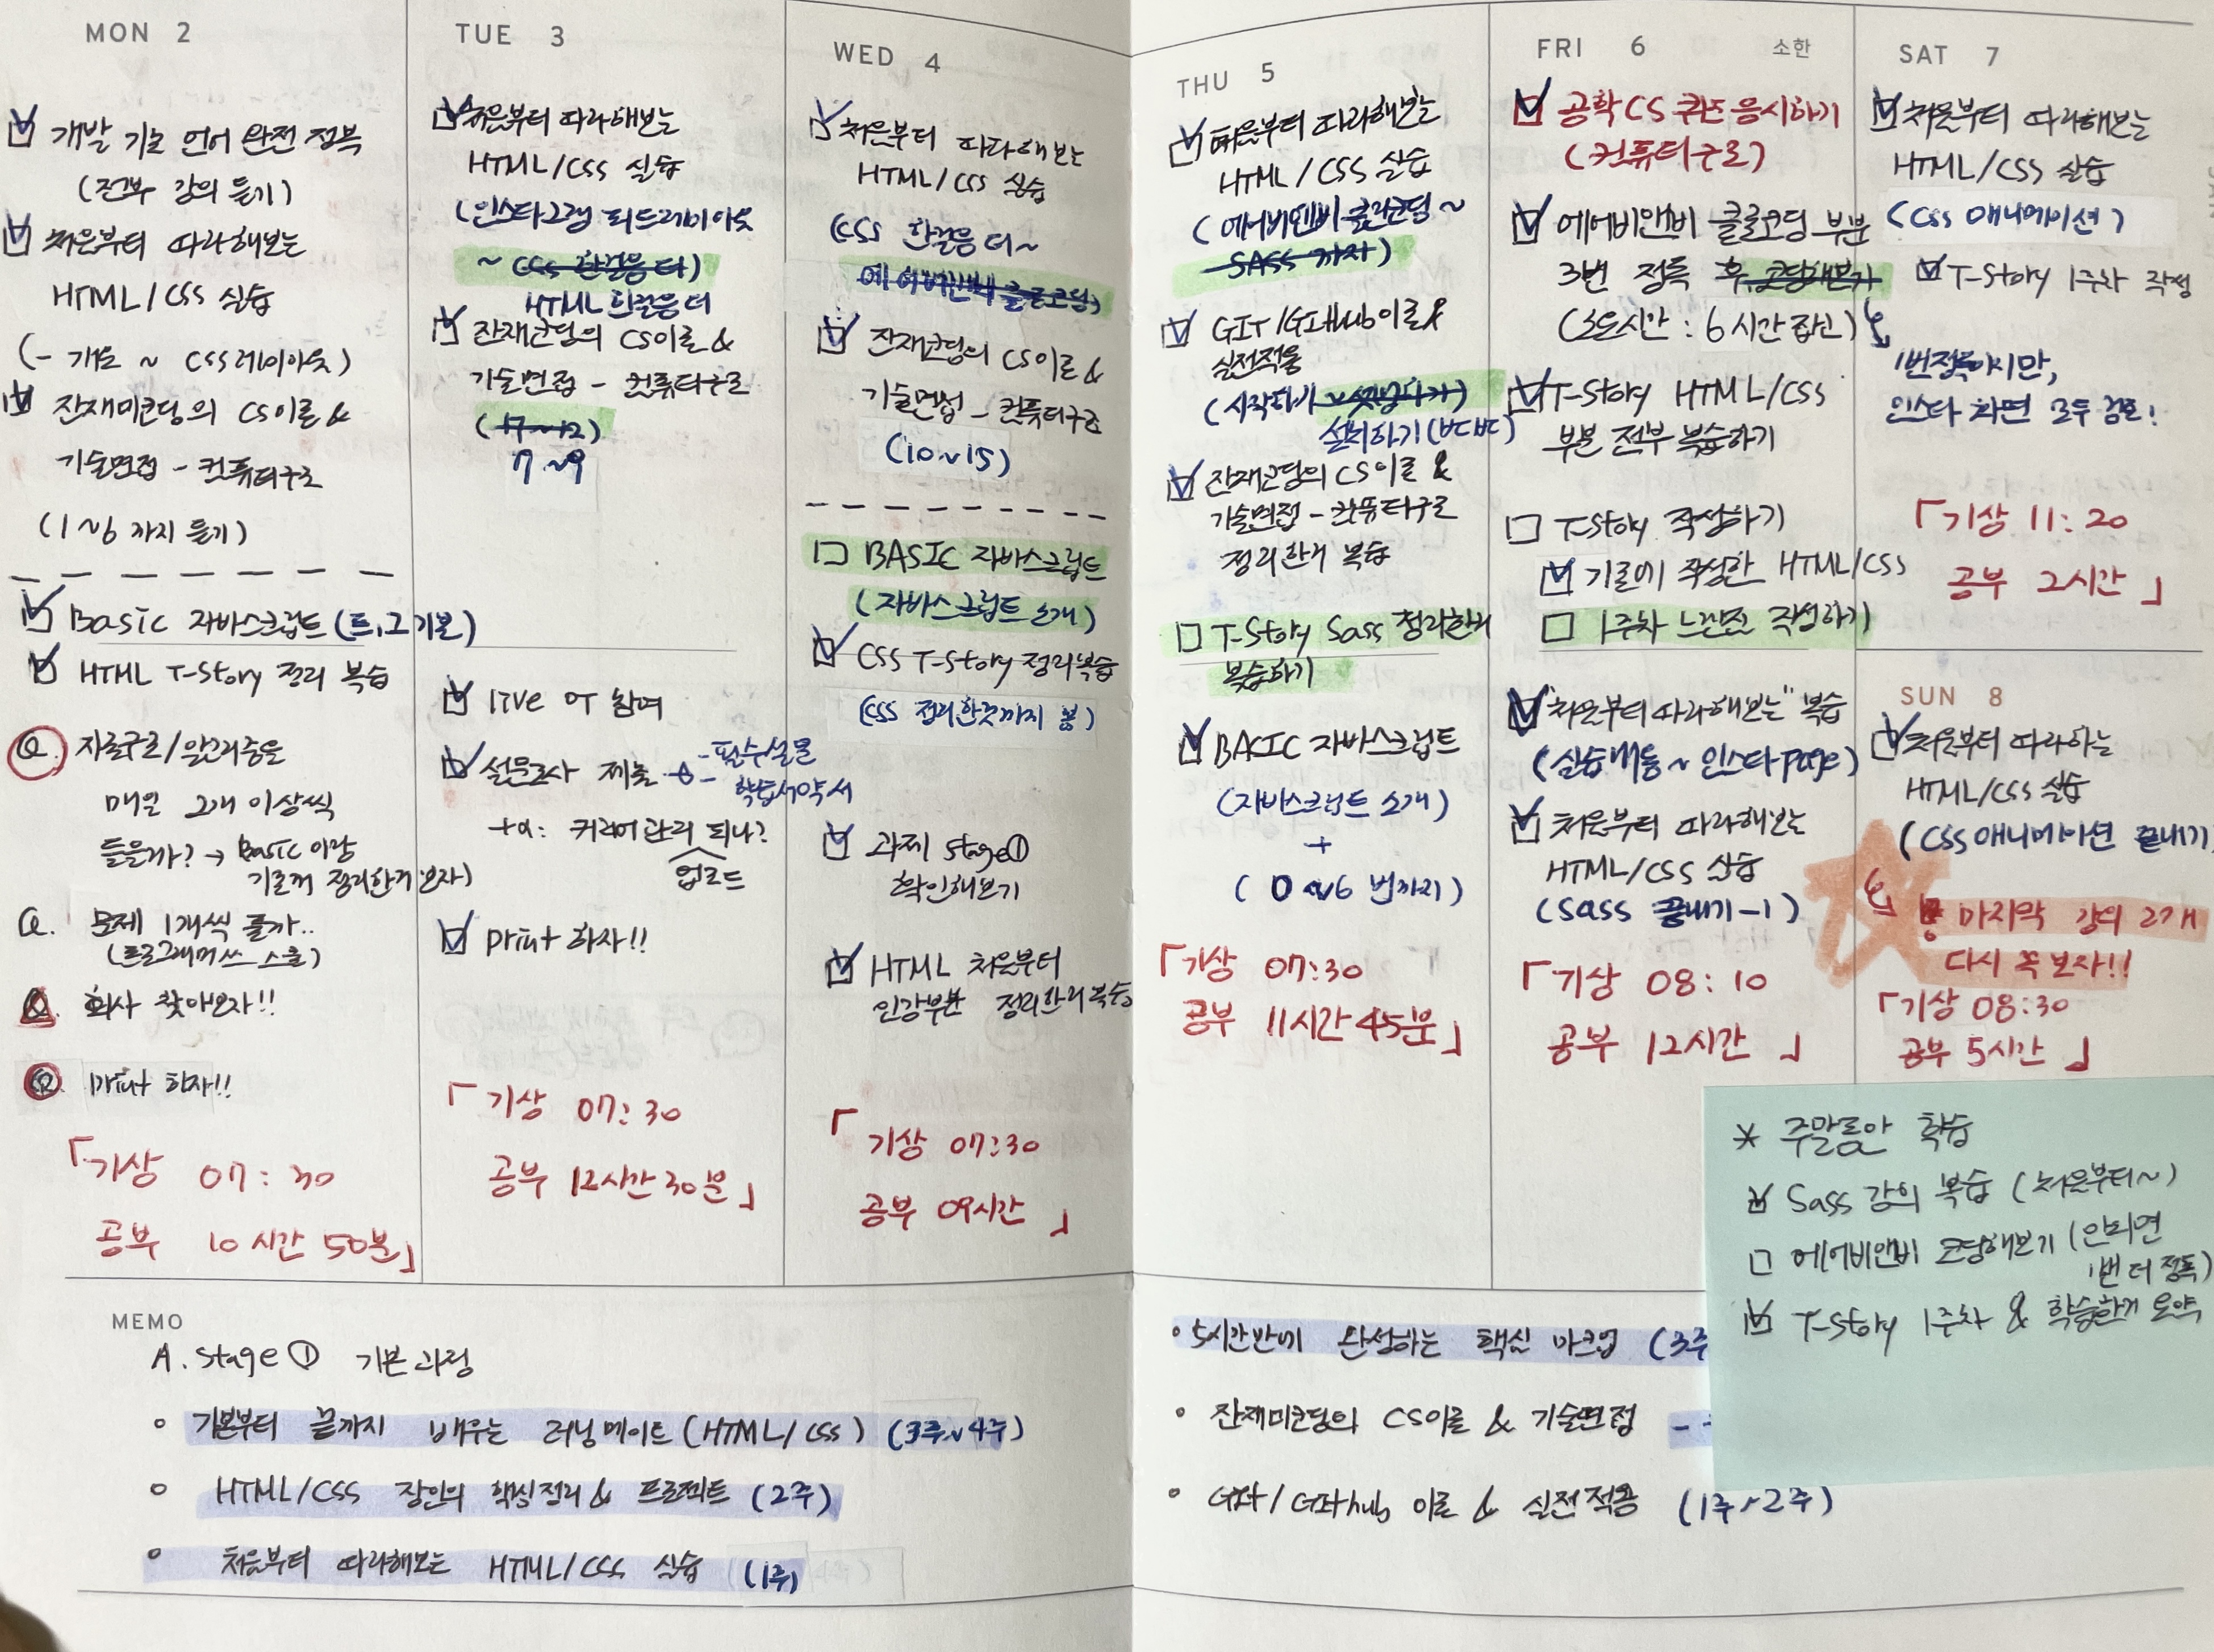 MON 2
개발 기능 언어 완전 정복
(전부 강의 듣기)
처음부터 따라해보는
HTML/CSS 실습
(- 개요 ~ CSS 레이아웃)
잔재미코딩의 CS이론 &
기술면접 - 컴퓨터구조
(1~6 까지 듣기)
Basic 자바스크립트 (트,그기본)
HTML T-Story 정리 복습
Q. 자료구조/알고리즘은
매일 2개 이상씩
들을까? → Basic 이랑
기존꺼 정리한거 보자)
Q. 문제 1개씩 풀까..
(프로그래머쓰 스쿨)
Q. 회사 찾아보자!!
Q. print 하자!!
「기상 07:30
공부 10시간 50분」
TUE 3
처음부터 따라해보는
HTML/CSS 실습
(인스타그램 피드레이아웃
~ CSS 한걸음 더)
HTML 한걸음더
잔재코딩의 CS이론 &
기술면접 - 컴퓨터구조
(7~12)
7~9
live OT 참여
설문조사 제출 - 필수설문
- 학습서약서
+α: 커리어관리 되나?
업로드
print 하자!!
「기상 07:30
공부 12시간 30분」
WED 4
처음부터 따라해보는
HTML/CSS 실습
(CSS 한걸음 더~
에어비앤비 클론코딩)
잔재코딩의 CS이론 &
기술면접 - 컴퓨터구조
(10~15)
BASIC 자바스크립트
(자바스크립트 소개)
CSS T-Story 정리복습
(CSS 정리한것까지 봄)
과제 stage①
확인해보기
HTML 처음부터
인강부분 정리한거복습
「기상 07:30
공부 09시간」
THU 5
처음부터 따라해보는
HTML/CSS 실습
(에어비앤비 클론코딩~
SASS 까지)
GIT/GitHub이론&
실전적용
(시작하기
설치하기(바탕)
잔재코딩의 CS이론 &
기술면접 - 컴퓨터구조
정리한거 복습
T-Story Sass 정리한거
복습하기
BASIC 자바스크립트
(자바스크립트 소개)
+
(0~6 번까지)
「기상 07:30
공부 11시간 45분」
FRI 6 소한
공학CS 퀴즈 응시하기
(컴퓨터구조)
에어비앤비 클론코딩 부분
3번 정독 후 코딩해보기
(소요시간 : 6시간 잡고)
T-Story HTML/CSS
부분 전부 복습하기
T-Story 작성하기
기존에 작성한 HTML/CSS
1주차 느낀점 작성하기
"처음부터 따라해보는" 복습
(실습 ~ 인스타 page)
처음부터 따라해보는
HTML/CSS 실습
(Sass 끝내기-1)
「기상 08:10
공부 12시간」
SAT 7
처음부터 따라해보는
HTML/CSS 실습
(CSS 애니메이션)
T-Story 1주차 작성
1번정독이지만,
인스타 화면 모두 검토!
「기상 11:20
공부 2시간」
SUN 8
처음부터 따라하는
HTML/CSS 실습
(CSS 애니메이션 끝내기)
마지막 강의 2개
다시 꼭 보자!!
「기상 08:30
공부 5시간」
* 주말동안 학습
Sass 강의 복습 (처음부터~)
에어비앤비 코딩해보기 (안되면
1번 더 정독)
T-Story 1주차 & 학습한거 요약
MEMO
A. Stage① 기본과정
• 기본부터 끝까지 배우는 러닝메이트 (HTML/CSS) (3주~4주)
• HTML/CSS 장인의 핵심정리 & 프로젝트 (2주)
• 처음부터 따라해보는 HTML/CSS 실습 (1주)
• 5시간만에 완성하는 핵심 마크업 (3주
• 잔재미코딩의 CS이론 & 기술면접 -
• Git/Github 이론 & 실전적용 (1주~2주)